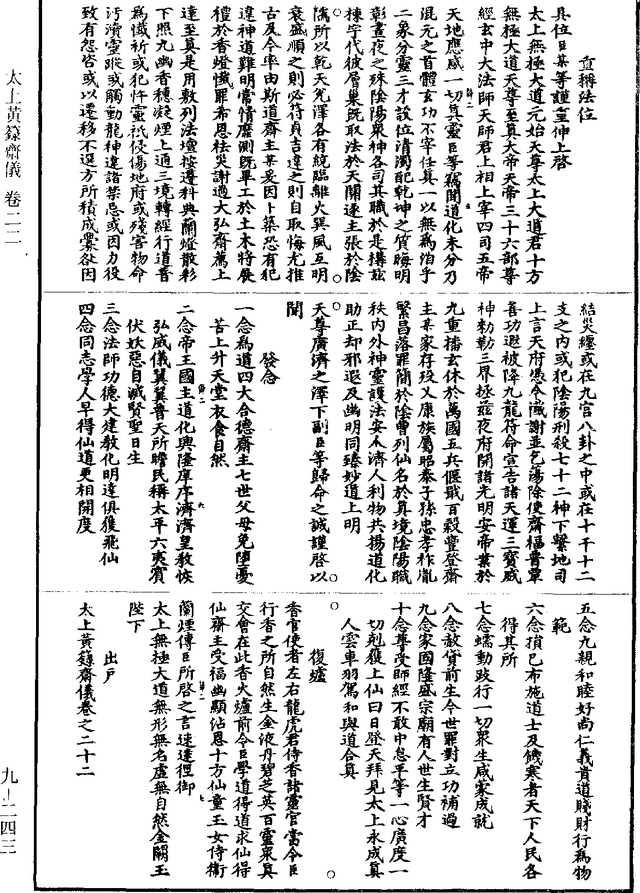 宣稱法位
具位臣某等謹重伸上啓
太上無極大道元始天尊太上大道君十方
無極大道天尊至真大帝天帝三十六部尊
經玄中大法師天師君上相上宰四司五帝
天地應感一切真靈臣等竊聞道化未分乃
混元之首體玄功不宰任真一以無爲洎乎
二象分靈三才設位清濁配乾坤之質晦明
彰晝夜之殊陰陽衆神各司其職於是構竑
棟宇代彼層巢既取法於天關遂主張於陰
隲所以乾天兊澤各有統臨離火巽風互明
衰盛順之則必符貞吉違之則自取悔尤推
古及今率由斯道齋主某妥因卜築恐有犯
違神道難明常情靡測既畢工於土木將展
禮於香燈懺罪希恩祛災謝過大弘齋薦上
達至真是用敷列法壇按遵科典蘭燈散彩
下照九幽香穗凝煙上通三境轉經行道普
爲懺祈或犯忤靈祇侵傷地府或殘害物命
汙瀆靈蹤或觸動龍神違諸禁忌或因力役
致有怨咎或以遷移不選方所積成釁欲因
結災纏或在九宮八卦之中或在十干十二
支之内或犯陰陽刑殺七十二神下繫地司
上言天府憑今懺謝並乞蕩除使齋福普覃
善功遐被降九龍符命宣告諸天運三寶威
神勑勒三界拯茲夜府開諸光明安帝業於
九重播玄休於萬國五兵偃戢百穀豐登齋
主某家存歿乂康族屬昭泰子孫忠孝祚胤
繁昌落罪簡於陰曹列仙名於真境陰陽職
秩内外神靈護法安人濟人利物共揚道化
助正却邪遐及幽明同臻妙道上明
天尊廣濟之澤下副臣等歸命之誠謹啓以
聞
發念
一念爲道四大合德齋主七世父母免墮憂
苦上升天堂衣食自然
二念帝王國主道化興隆庠序濟濟皇教恢
弘威儀翼翼普天所瞻民稱太平六夷賓
伏妖惡自滅賢聖日生
三念法師功德大建教化明達俱獲飛仙
四念同志學人早得仙道更相開度
五念九親和睦好尚仁義貴道賤財行爲物
範
六念損己布施道士及饑寒者天下人民各
得其所
七念蠕動蚑行一切衆生咸蒙成就
八念赦貸前生今世罪對立功補過
九念家國隆盛宗廟有人世生賢才
十念尊受師經不敢中怠平等一心廣度一
切剋獲上仙白日登天拜見太上永成真
人雲車羽駕和與道合真
復爐
香官使者左右龍虎君侍香諸靈官當令臣
行香之所自然生金液丹碧芝英百靈衆真
交會在此香火爐前令臣學道得道求仙得
仙齋主受福幽顯沾恩十方仙童玉女侍衛
蘭煙傳臣所啓之言速達徑御
太上無極大道無形無名虛無自然金闕玉
陛下
出戶
太上黃籙齋儀卷之二十二
太上黃籙齋儀 卷二二
九—二四三